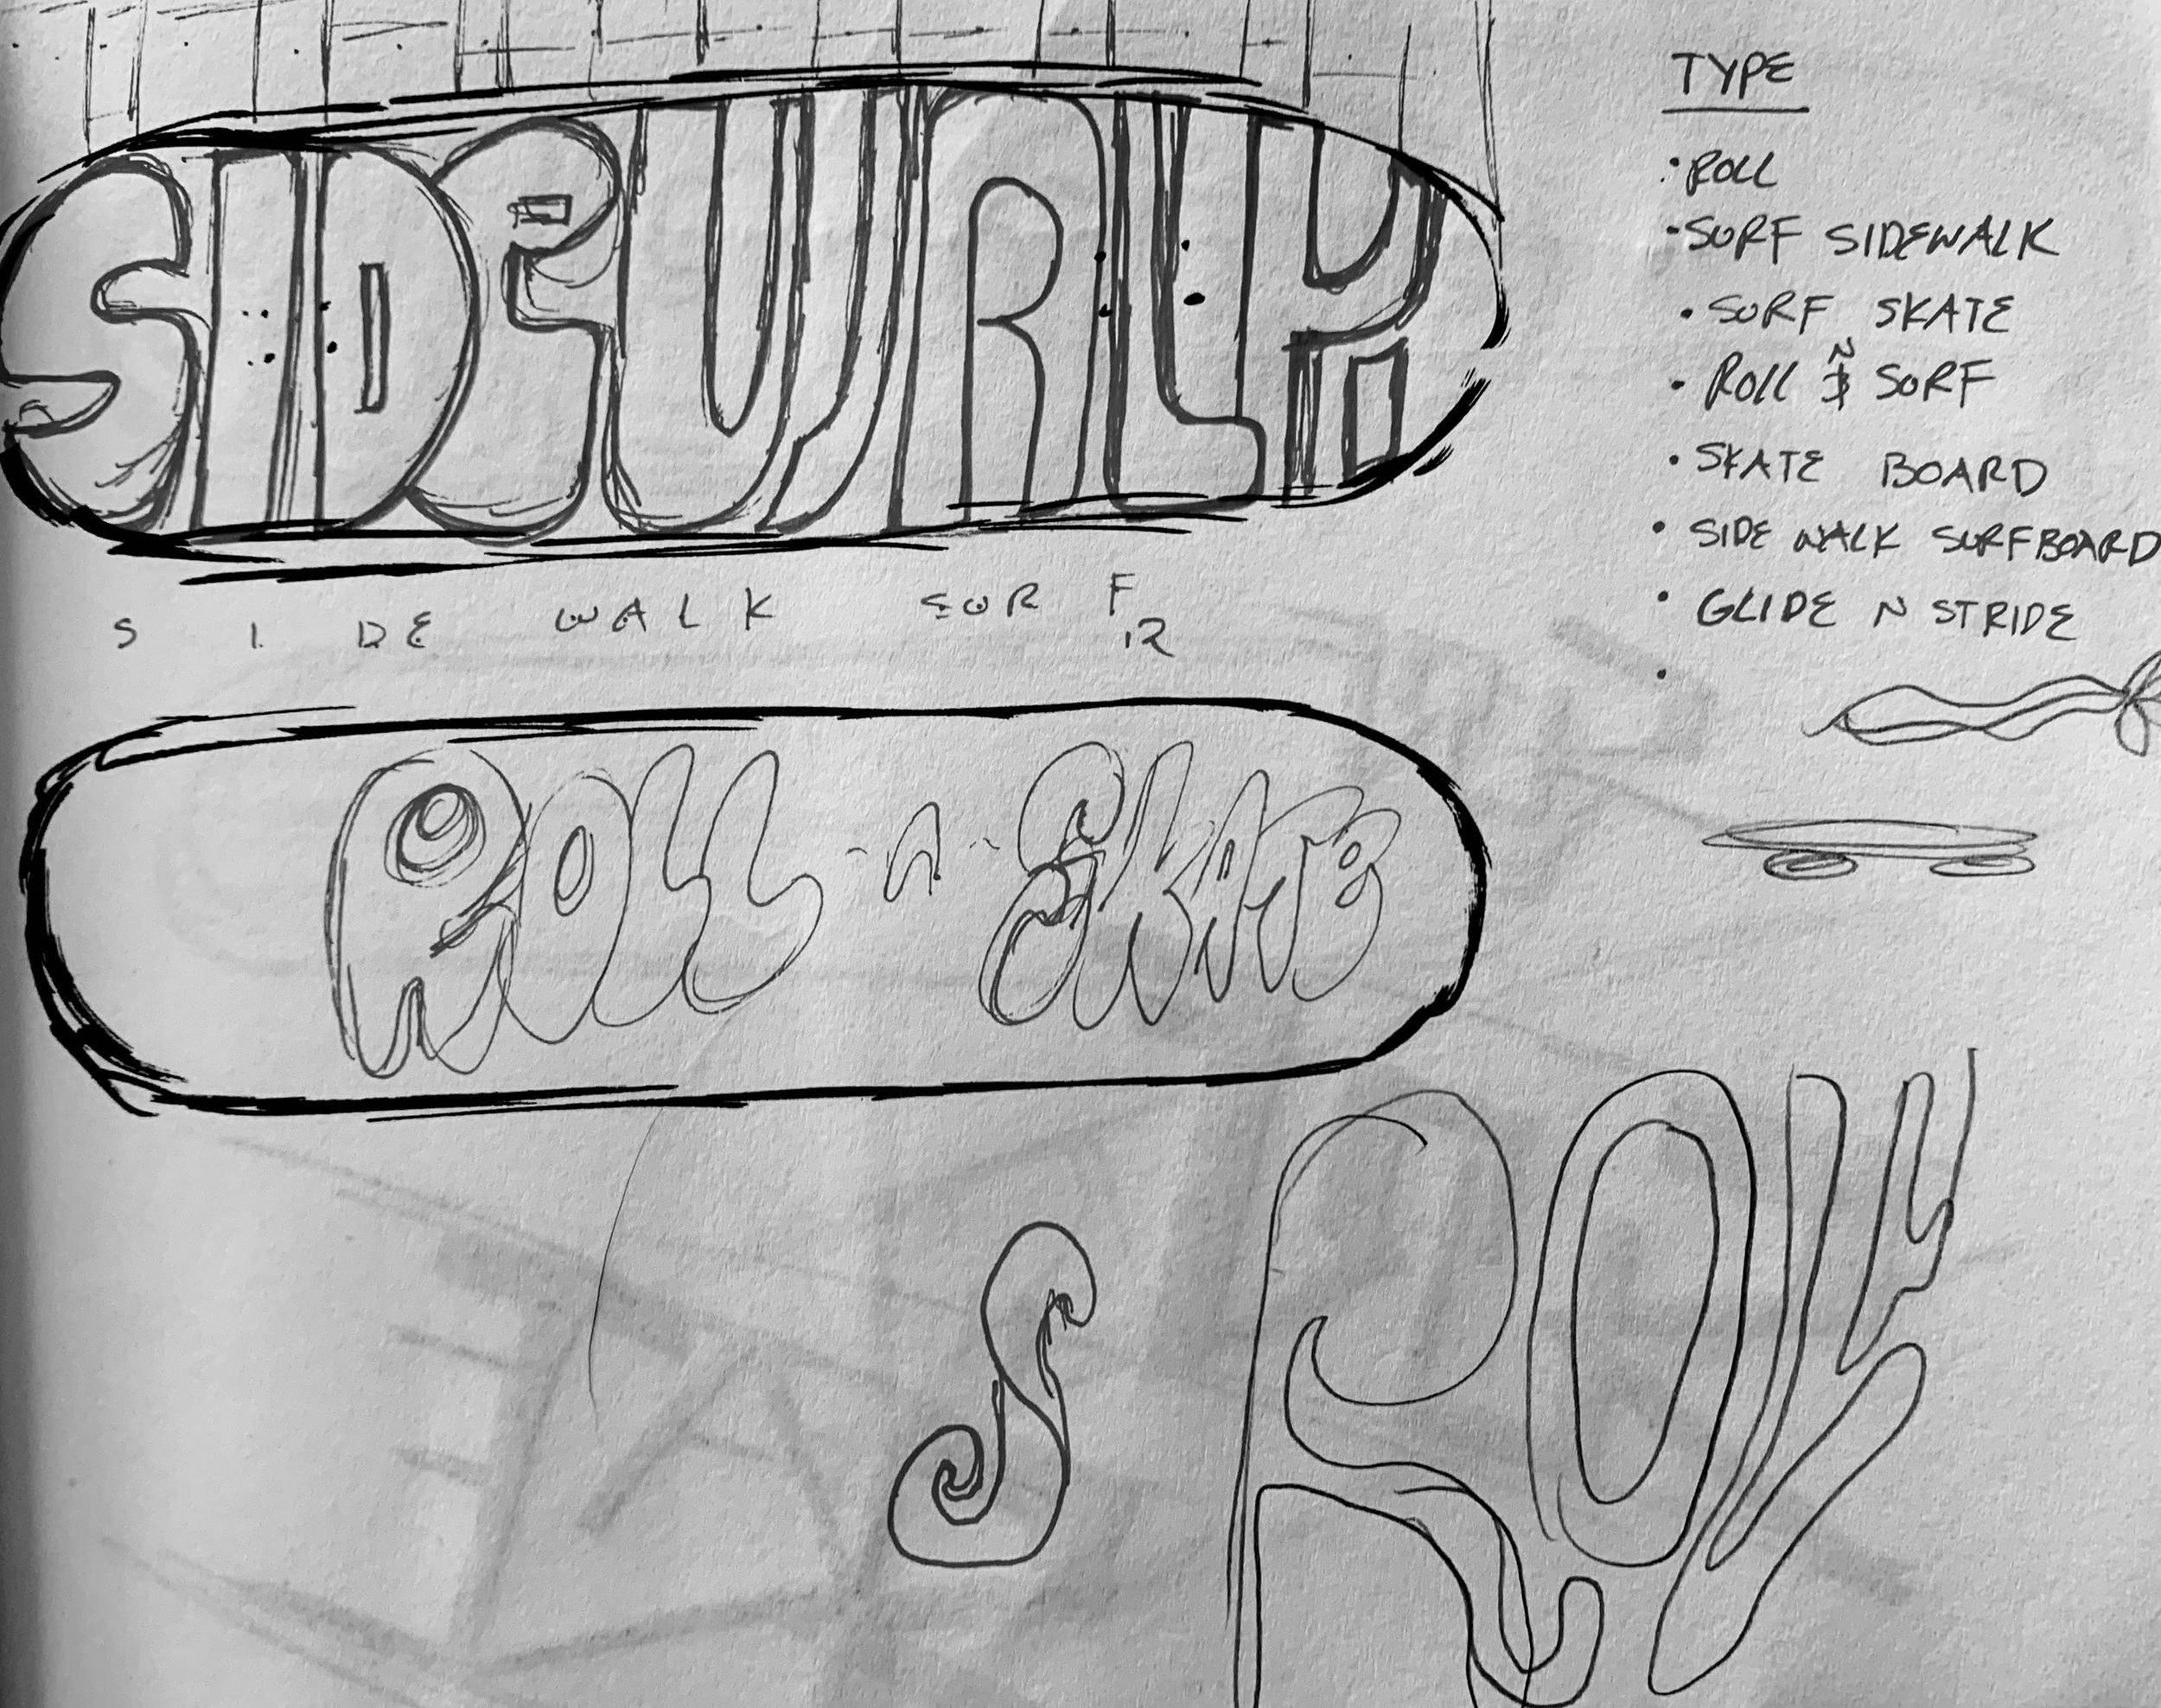 SIDEWALK
S I DE WALK SURF
12
ROLL -N- SKATE
S
ROLL
TYPE
• ROLL
• SURF SIDEWALK
• SURF SKATE
• ROLL N SURF
• SKATE BOARD
• SIDE WALK SURFBOARD
• GLIDE N STRIDE
•